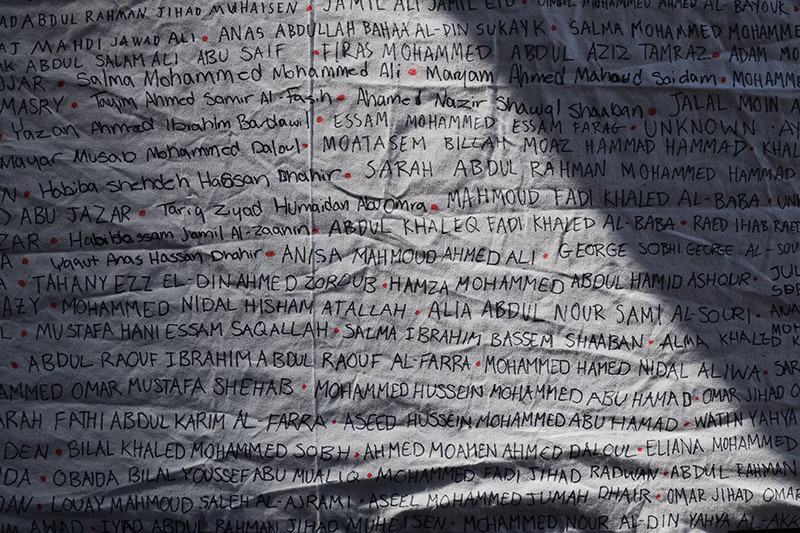 ABDUL RAHMAN JIHAD MUHAISEN • JAMIL ALI JAMIL EID • MOHAMMED AHMED AL-BAYOUK •
MAHDI JAWAD ALI • ANAS ABDULLAH BAHAA AL-DIN SUKAYK • SALMA MOHAMMED MOHAMME
ABDUL SALAM ALI ABU SAIF • FIRAS MOHAMMED ABDUL AZIZ TAMRAZ • ADAM MO
JJAR • Salma Mohammed Mohammed Ali • Maryam Ahmed Mahmoud Saidam • MOHAMME
MASRY • Tayim Ahmed Samir Al-Fasih • Ahamed Nazir Shawqi Shaaban • JALAL MOIN A
• Yazan Ahmed Ibrahim Bardawil • ESSAM MOHAMMED ESSAM FARAG • UNKNOWN • AY
Mayar Musab Mohammed Daloul • MOATASEM BILLAH MOAZ HAMMAD HAMMAD • KHAL
N • Habiba Shehdeh Hassan Dhahir • SARAH ABDUL RAHMAN MOHAMMED HAMMAD
D ABU JAZAR • Tariq Ziyad Humaidan Abu Omra • MAHMOUD FADI KHALED AL-BABA • UN
ZAR • Habiba Essam Jamil Al-Zaanin • ABDUL KHALEQ FADI KHALED AL-BABA • RAED IHAB RAE
A • Yaqut Anas Hassan Dhahir • ANISA MAHMOUD AHMED ALI • GEORGE SOBHI GEORGE AL-SOU
A • TAHANY EZZ EL-DIN AHMED ZOROUB • HAMZA MOHAMMED ABDUL HAMID ASHOUR • JUL
AZY • MOHAMMED NIDAL HISHAM ATALLAH • ALIA ABDUL NOUR SAMI AL-SOURI • ANA
L • MUSTAFA HANI ESSAM SAQALLAH • SALMA IBRAHIM BASSEM SHAABAN • ALMA KHALED K
• ABDUL RAOUF IBRAHIM ABDUL RAOUF AL-FARRA • MOHAMMED HAMED NIDAL ALIWA • SAR
AMMED OMAR MUSTAFA SHEHAB • MOHAMMED HUSSEIN MOHAMMED ABU HAMAD • OMAR JIHAD O
ARAH FATHI ABDUL KARIM AL-FARRA • ASEED HUSSEIN MOHAMMED ABU HAMAD • WATIN YAHYA
DEN • BILAL KHALED MOHAMMED SOBH • AHMED MOAMEN AHMED DALOUL • ELIANA MOHAMMED
NDA • OBAIDA BILAL YOUSSEF ABU MUALIQ • MOHAMMED FADI JIHAD RADWAN • ABDUL RAHMAN
DAN • LOUAY MAHMOUD SALEH AL-AJRAMI • ASEEL MOHAMMED JUMAH DHAIR • OMAR JIHAD OMAR
AWAD • IYAD ABDUL RAHMAN JIHAD MUHEISEN • MOHAMMED NOUR AL-DIN YAHYA AL-AKK